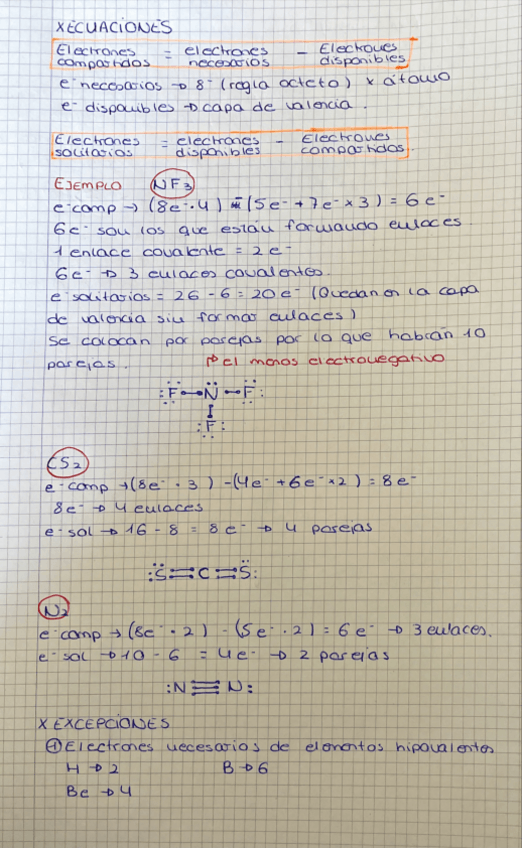 X ECUACIONES
Electrones compartidos = electrones necesarios - Electrones disponibles
e⁻ necesarios → 8⁻ (regla octeto) x átomo
e⁻ disponibles → capa de valencia.
Electrones solitarios = electrones disponibles - Electrones compartidos.
EJEMPLO NF₃
e⁻comp → (8e⁻·4) - (5e⁻ + 7e⁻ x 3) = 6e⁻
6e⁻ son los que están formando enlaces
1 enlace covalente = 2e⁻
6e⁻ → 3 enlaces covalentes.
e⁻solitarios = 26 - 6 = 20e⁻ (Quedan en la capa
de valencia sin formar enlaces)
Se colocan por parejas por lo que habrán 10
parejas. → el menos electronegativo
:F—N—F:
:F:
CS₂
e⁻comp → (8e⁻ · 3) - (4e⁻ + 6e⁻ x 2) = 8e⁻
8e⁻ → 4 enlaces
e⁻sol → 16 - 8 = 8e⁻ → 4 parejas
:S=C=S:
N₂
e⁻comp → (8e⁻ · 2) - (5e⁻ · 2) = 6e⁻ → 3 enlaces.
e⁻sol → 10 - 6 = 4e⁻ → 2 parejas
:N≡N:
X EXCEPCIONES
① Electrones necesarios de elementos hipovalentes
H → 2 B → 6
Be → 4